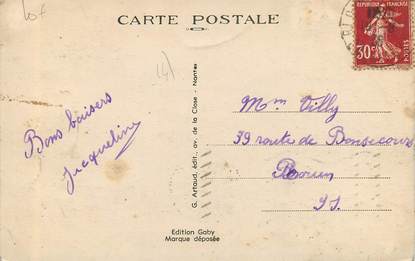 10F
CARTE POSTALE
REPUBLIQUE FRANCAISE
30c
POSTES
Bons baisers
Jacqueline
G. Artaud, édit., av. de la Close - Nantes
Mme Villy
39 route de Bonsecours
Rouen
S I.
Edition Gaby
Marque déposée